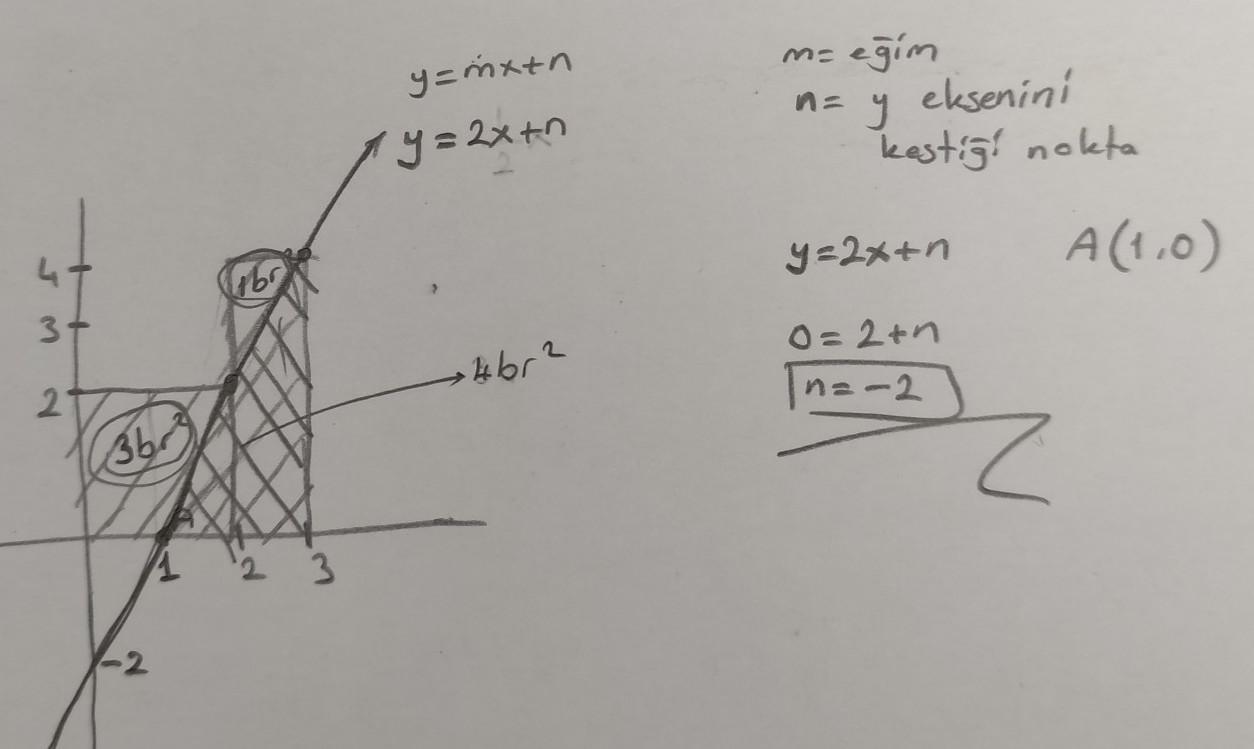 y=mx+n
y=2x+n
m= eğim
n= y eksenini
kestiği nokta
y=2x+n A(1,0)
0=2+n
n=-2
4
3
2
1br
4br²
3br²
A
1 2 3
-2